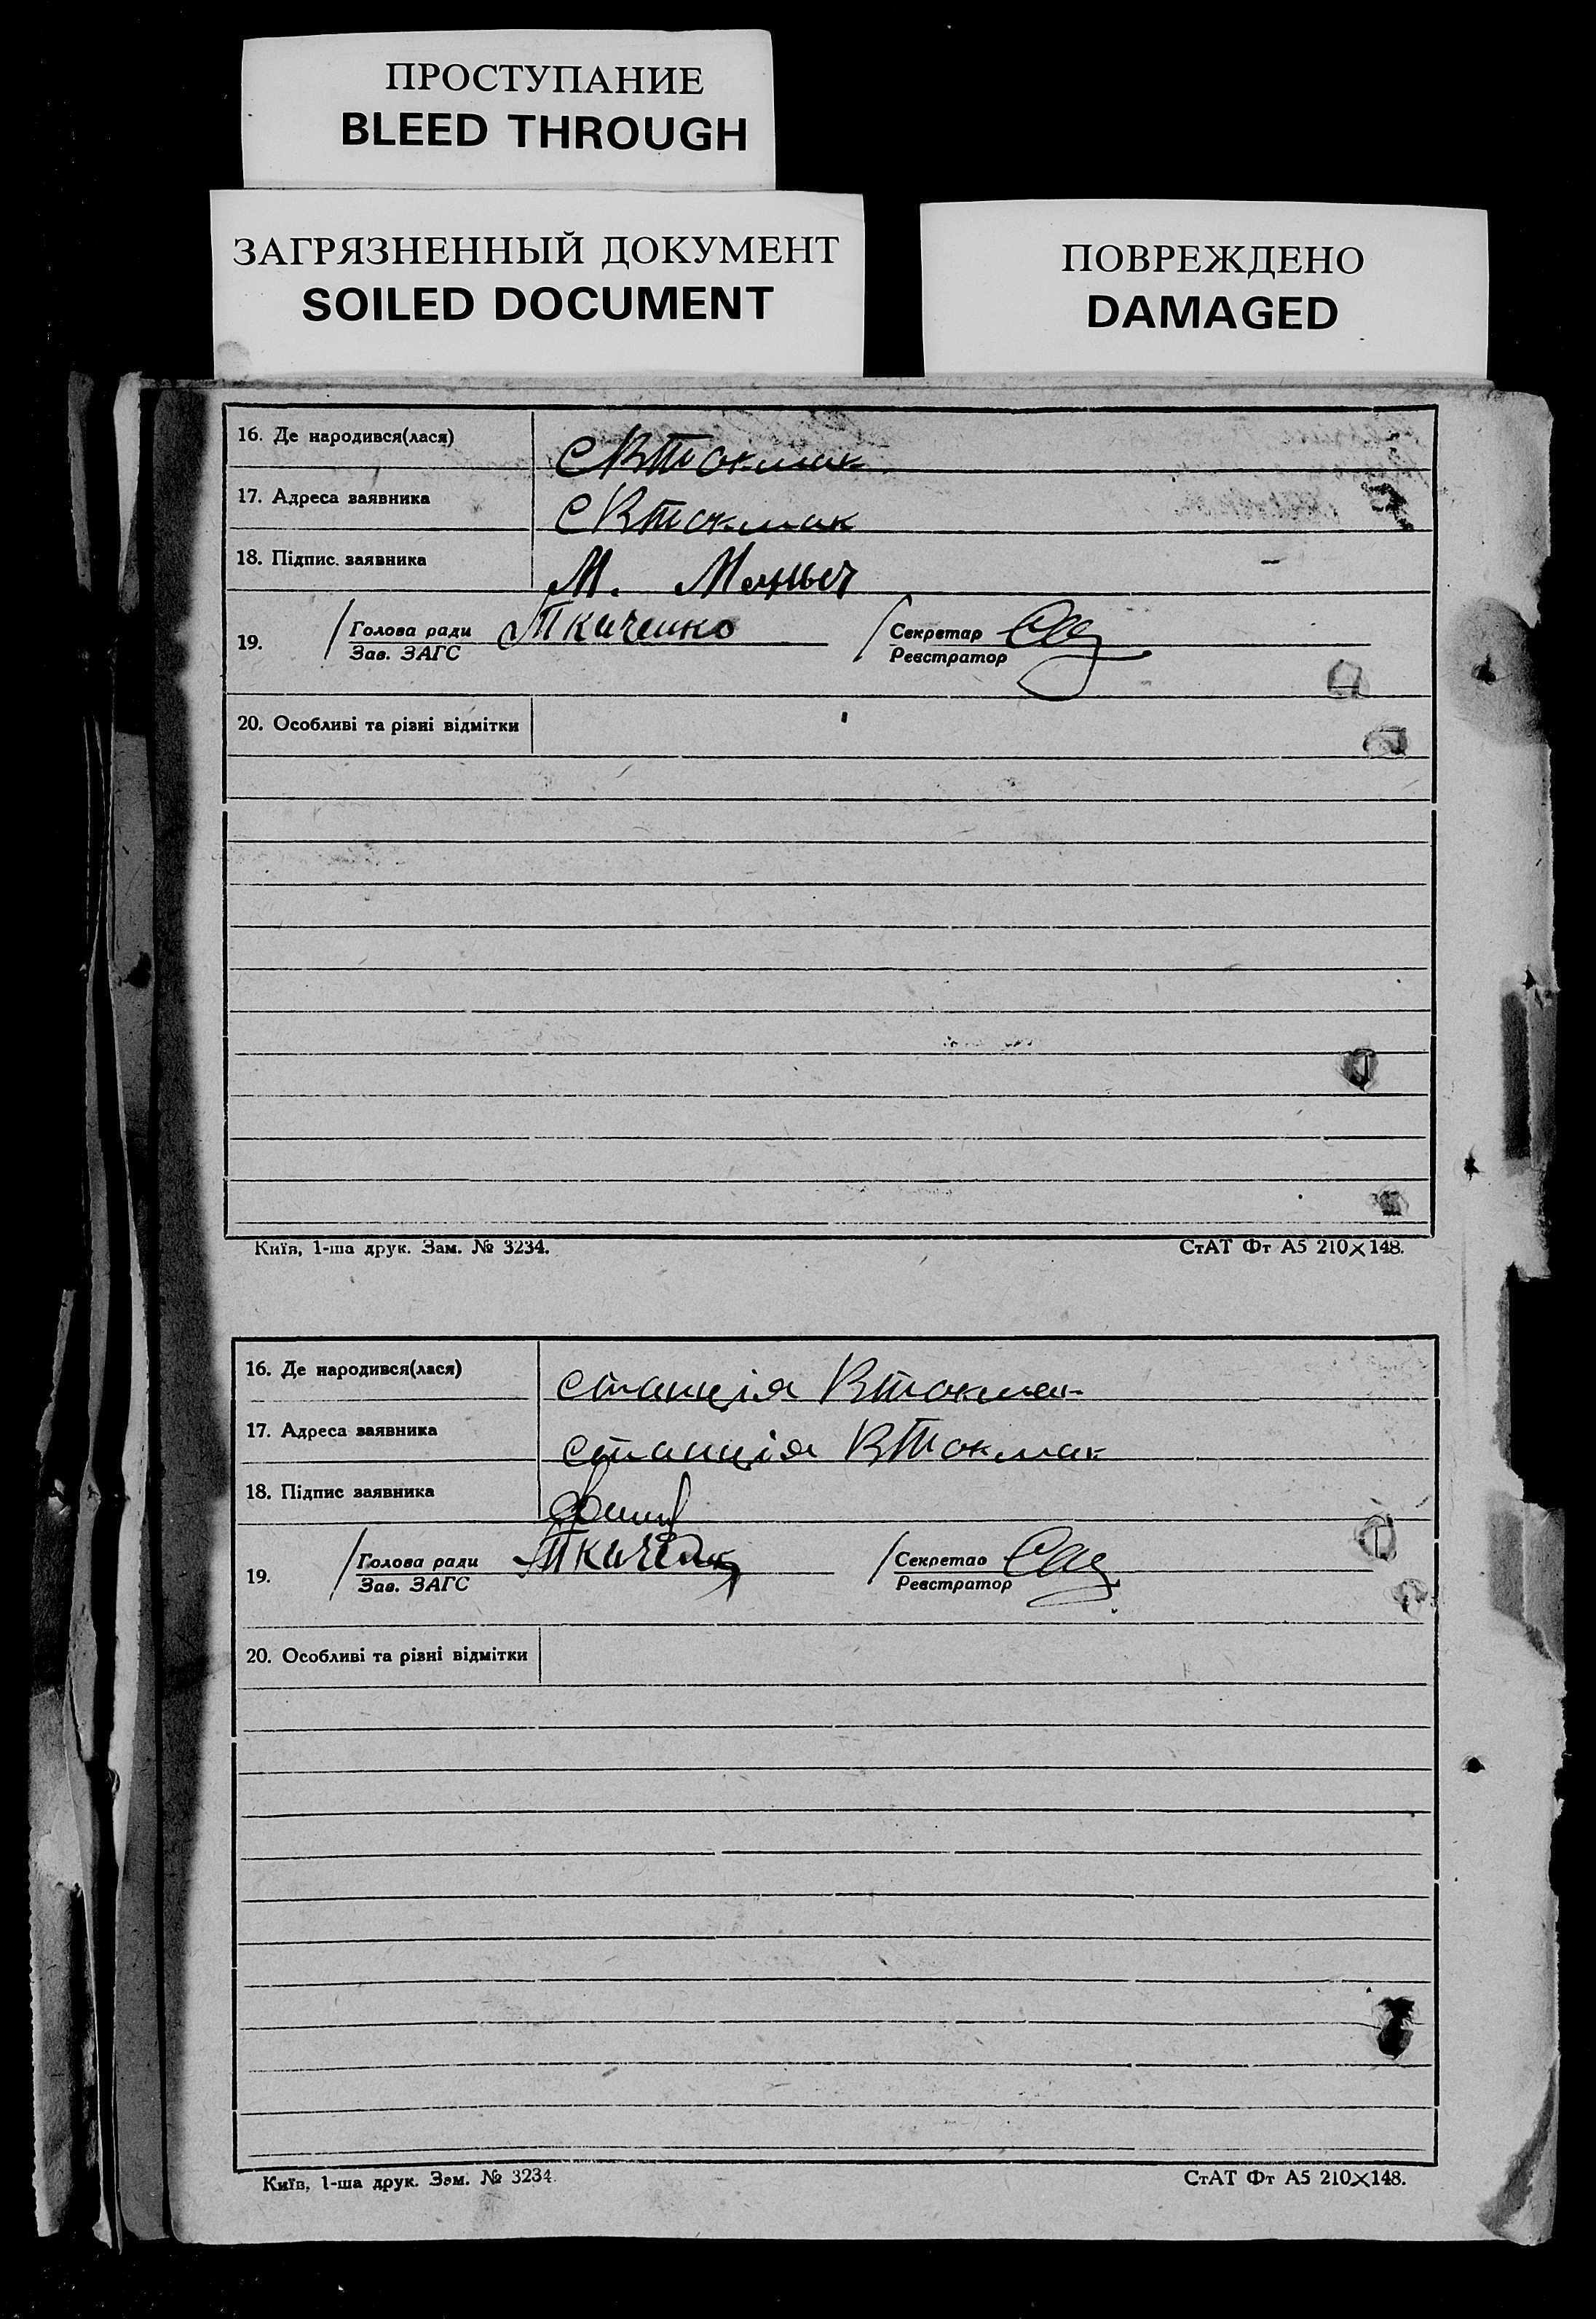 ПРОСТУПАНИЕ
BLEED THROUGH
ЗАГРЯЗНЕННЫЙ ДОКУМЕНТ
SOILED DOCUMENT
ПОВРЕЖДЕНО
DAMAGED
16. Де народився(лася) С ВТокмак
17. Адреса заявника С ВТокмак
18. Підпис заявника М.
19. / Голова ради Ткаченко / Секретар
Зав. ЗАГС Реєстратор
20. Особливі та різні відмітки
Київ, 1-ша друк. Зам. № 3234. СтАТ Фт А5 210×148.
16. Де народився(лася) станція ВТокмак
17. Адреса заявника станція ВТокмак
18. Підпис заявника
19. / Голова ради Ткаченко / Секретар
Зав. ЗАГС Реєстратор
20. Особливі та різні відмітки
Київ, 1-ша друк. Зам. № 3234. СтАТ Фт А5 210×148.